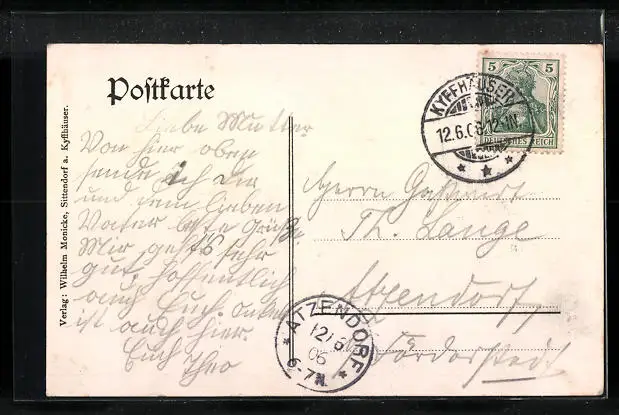 Postkarte
Verlag: Wilhelm Monicke, Sittendorf a. Kyffhäuser.
5 5
DEUTSCHES REICH
KYFFHÄUSER
12.6.06.12-1N.
Liebe Mutter
Von hier oben
sende ich Dir
und dem lieben
Vater beste Grüße.
Mir geht's sehr
gut, hoffentlich
auch Euch. Onkel
ist auch hier.
Euch Theo
Herrn Gastwirt
Th. Lange
Atzendorf
Förderstedt
ATZENDORF
12/6
06
6-7N.